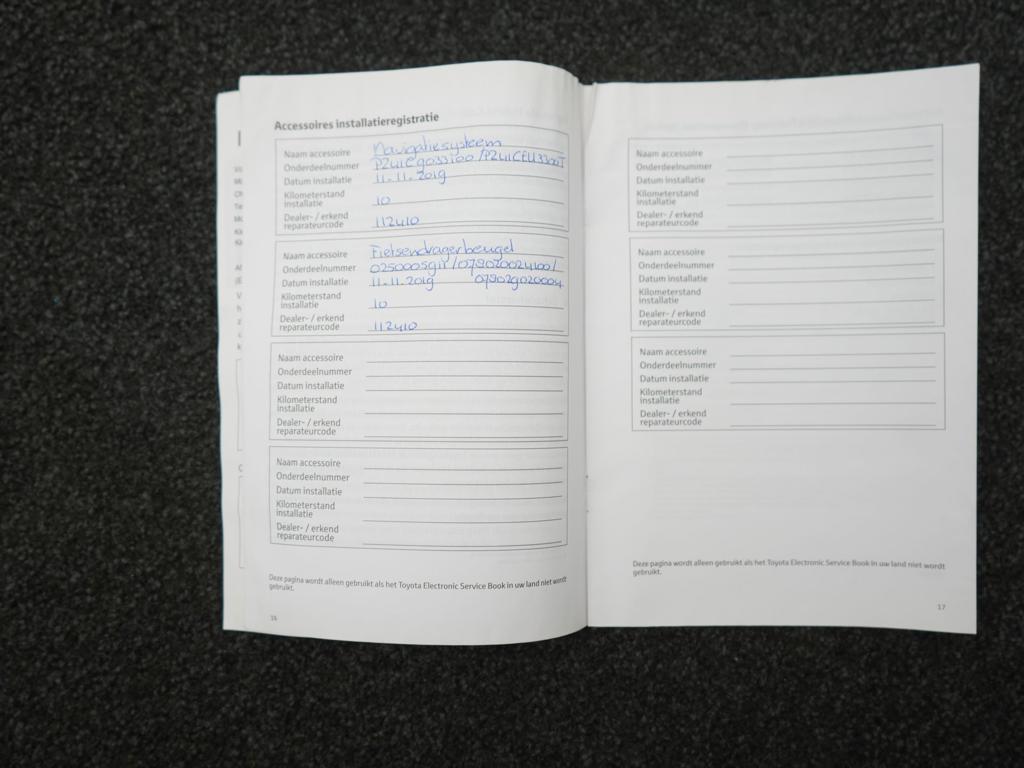 Accessoires installatieregistratie
Naam accessoire Navigatiesysteem
Onderdeelnummer
Datum installatie 11.11.2019
Kilometerstand
installatie 10
Dealer- / erkend
reparateurcode 112410
Naam accessoire Fietsendragerbeugel
Onderdeelnummer
Datum installatie 11.11.2019
Kilometerstand
installatie 10
Dealer- / erkend
reparateurcode 112410
Naam accessoire
Onderdeelnummer
Datum installatie
Kilometerstand
installatie
Dealer- / erkend
reparateurcode
Naam accessoire
Onderdeelnummer
Datum installatie
Kilometerstand
installatie
Dealer- / erkend
reparateurcode
Deze pagina wordt alleen gebruikt als het Toyota Electronic Service Book in uw land niet wordt
gebruikt.
16
Naam accessoire
Onderdeelnummer
Datum installatie
Kilometerstand
installatie
Dealer- / erkend
reparateurcode
Naam accessoire
Onderdeelnummer
Datum installatie
Kilometerstand
installatie
Dealer- / erkend
reparateurcode
Naam accessoire
Onderdeelnummer
Datum installatie
Kilometerstand
installatie
Dealer- / erkend
reparateurcode
Deze pagina wordt alleen gebruikt als het Toyota Electronic Service Book in uw land niet wordt
gebruikt.
17